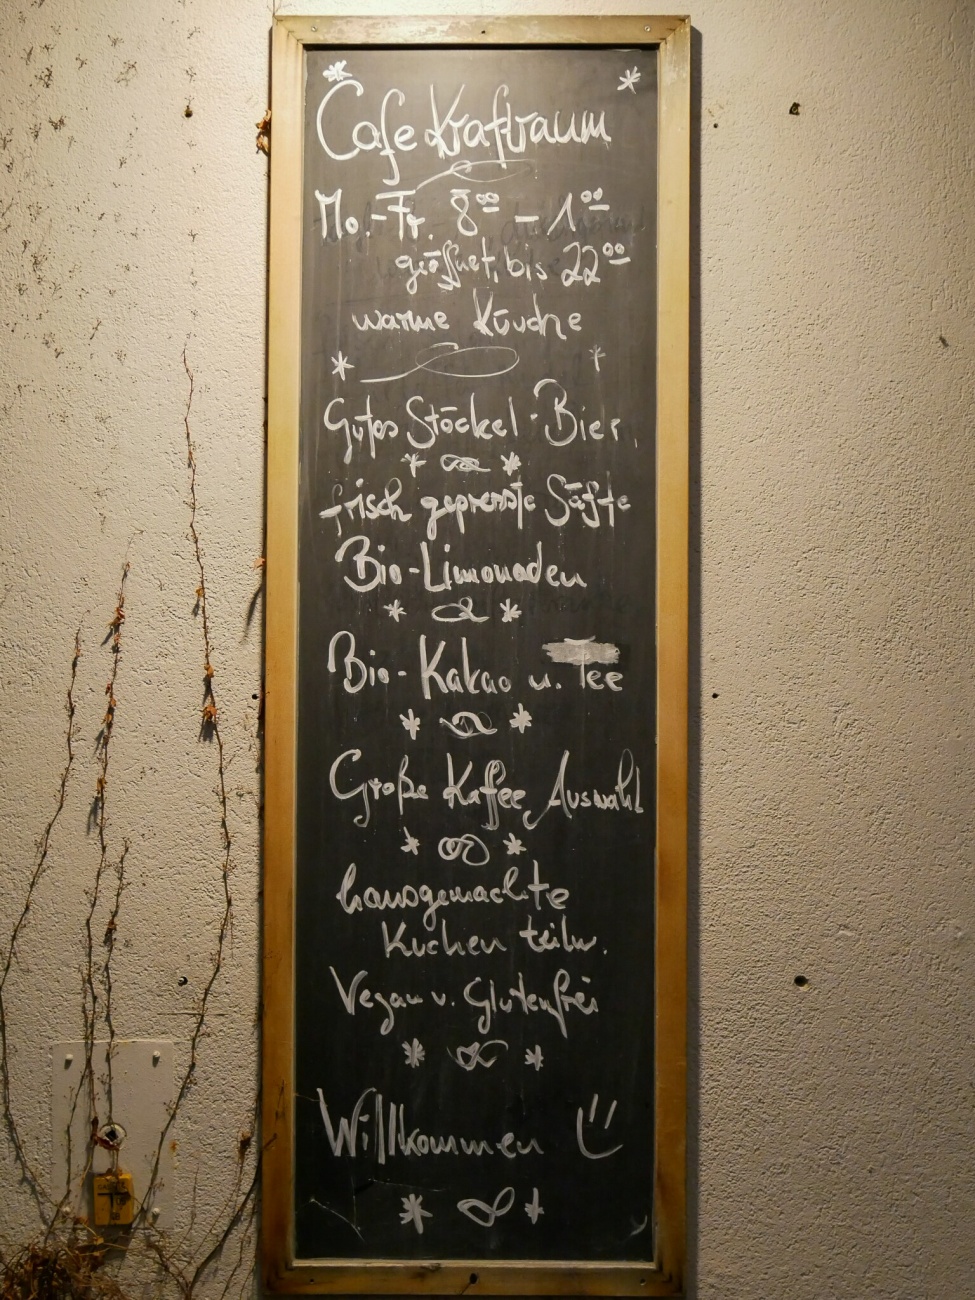 Cafe Kraftraum
Mo.-Fr. 8⁰⁰ – 1⁰⁰
geöffnet, bis 22⁰⁰
warme Küche
Gutes Stöckel-Bier,
frisch gepresste Säfte
Bio-Limonaden
Bio-Kakao u. Tee
Große Kaffee Auswahl
hausgemachte
Kuchen teilw.
Vegan u. Glutenfrei
Willkommen